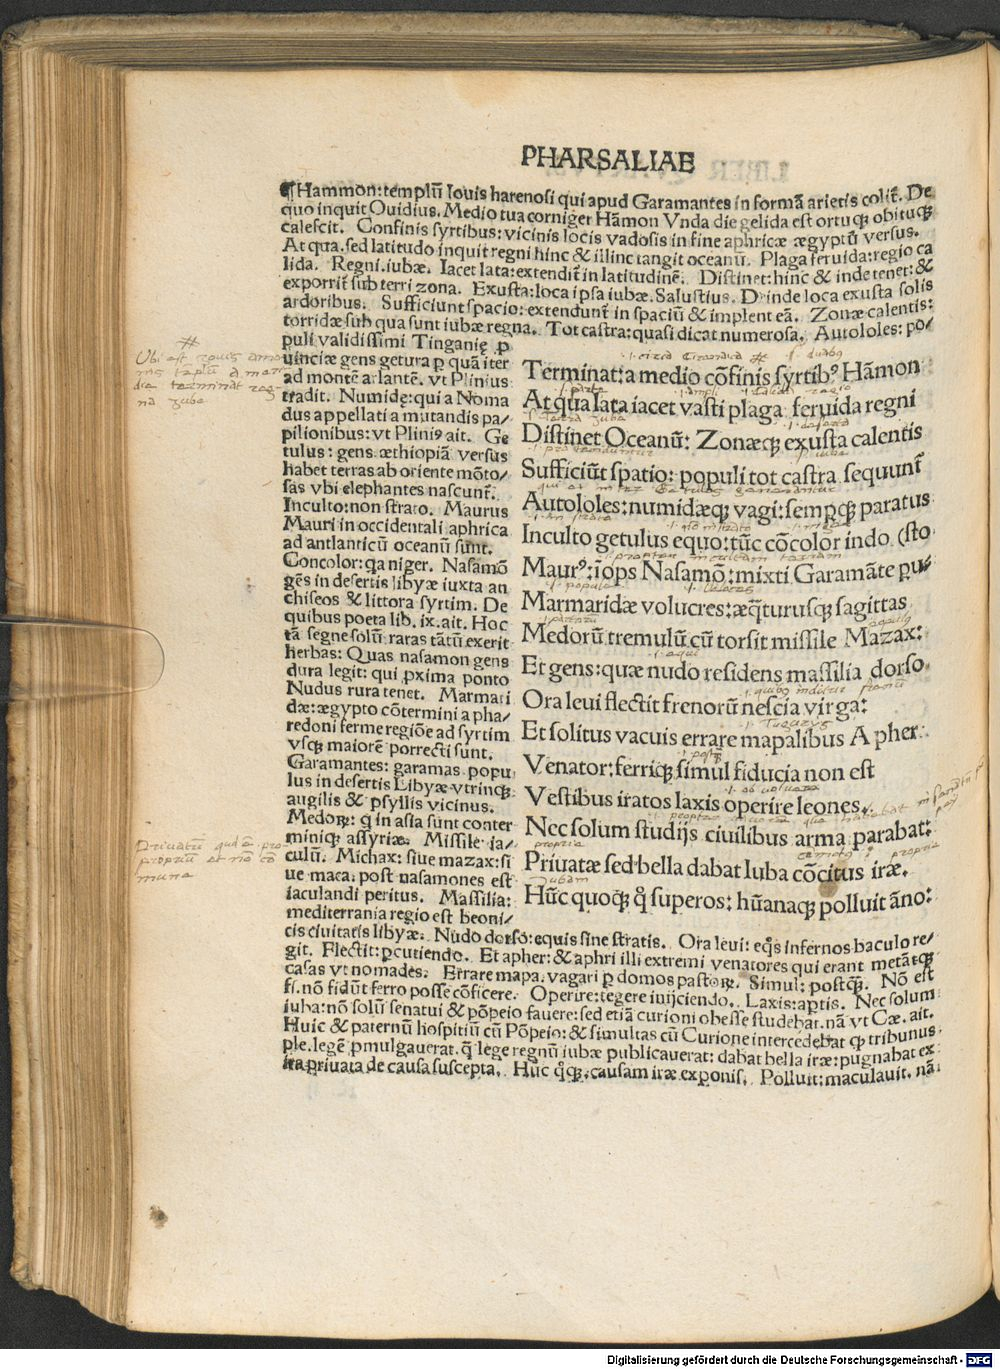 PHARSALIAE
Hammon: templū Iouis harenosi qui apud Garamantes in formā arietis colit̃. De
quo inquit Ouidius. Medio tua corniger Hāmon Vnda die gelida est ortuqꝫ obituqꝫ
calescit. Confinis syrtibus: vicinis locis vadosis in fine aphricæ ægyptū versus.
At qua. sed latitudo inquit regni hinc & illinc tangit oceanū. Plaga feruida: regio ca
lida. Regni. iubæ. Iacet lata: extendit̃ in latitudinē. Distinet: hinc & inde tenet: &
exporrit̃ sub terri zona. Exusta: loca ipsa iubæ. Salustius. Deinde loca exusta solis
ardoribus. Sufficiunt spacio: extendunt̃ in spaciū & implent eā. Zonæ calentis:
torridæ sub qua sunt iubæ regna. Tot castra: quasi dicat numerosa. Autololes: po/
puli validissimi Tinganię ꝓ
uinciæ gens getura ꝑ quā iter
ad montē atlantē. vt Plinius
tradit. Numidę: qui a Noma
dus appellati a mutandis pa/
pilionibus: vt Pliniꝰ ait. Ge
tulus: gens æthiopiā versus
habet terras ab oriente mōto/
sas vbi elephantes nascunt̃.
Inculto: non strato. Maurus
Mauri in occidentali aphrica
ad antlanticū oceanū sunt.
Concolor: qa niger. Nasamō
gēs in desertis libyæ iuxta an
chiseos & littora syrtim. De
quibus poeta lib. ix. ait. Hoc
tā segne solū: raras tātū exerit
herbas: Quas nasamon gens
dura legit: qui ꝓxima ponto
Nudus rura tenet. Marmari
dæ: ægypto cōtermini a pha/
redoni ferme regiōe ad syrtim
vsqꝫ maiorē porrecti sunt.
Garamantes: garamas. popu
lus in desertis Libyæ vtrinqꝫ
augilis & psyllis vicinus.
Medorꝝ: q̃ in asia sunt conter
miniqꝫ assyriæ. Missile ia/
culū. Michax: siue mazax: si
ue maca. post nasamones est
iaculandi peritus. Massilia:
mediterrania regio est beoni/
cis ciuitatis libyæ. Nudo dorso: equis sine stratis. Ora leui: eqͦs infernos baculo re/
git. Flectit: ꝑcutiendo. Et apher: & aphri illi extremi venatores qui erant metāt̃qꝫ
casas vt nomades. Errare mapa. vagari ꝑ domos pastorꝝ. Simul: postqꝫ̃. Nō est
fi. nō fidūt ferro posse cōficere. Operire: tegere inijciendo. Laxis: aptis. Nec solum
iuba: nō solū senatui & pōpeio fauere: sed etiā curioni obesse studebat. nā vt Cæ. ait.
Huic & paternū hospitiū cū Pōpeio: & simultas cū Curione intercedebat qꝫ tribunus
ple. legē ꝓmulgauerat. q̃ lege regnū iubæ publicauerat: dabat bella iræ: pugnabat ex
ira priuata de causa suscepta. Hūc qͦqꝫ. causam iræ exponis. Polluit: maculauit. nā
Terminat: a medio cōfinis syrtibꝰ Hāmon
At qua lata iacet vasti plaga feruida regni
Distinet Oceanū: Zonæqꝫ exusta calentis
Sufficiūt spatio: populi tot castra sequunt̃
Autololes: numidæqꝫ vagi: semꝑqꝫ paratus
Inculto getulus equo: tūc cōcolor indo (sto
Maurꝰ: īops Nasamō: mixti Garamāte ꝑu/
Marmaridæ volucres: æq̃turusqꝫ sagittas
Medorū tremulū cū torsit missile Mazax:
Et gens: quæ nudo residens massilia dorso
Ora leui flectit frenorū nescia virga:
Et solitus vacuis errare mapalibus Apher:
Venator: ferriqꝫ simul fiducia non est
Vestibus iratos laxis operire leones.
Nec solum studijs ciuilibus arma parabat:
Priuatæ sed bella dabat Iuba cōcitus iræ.
Hūc quoqꝫ q̊ superos: hūanaqꝫ polluit āno:
Digitalisierung gefördert durch die Deutsche Forschungsgemeinschaft - DFG